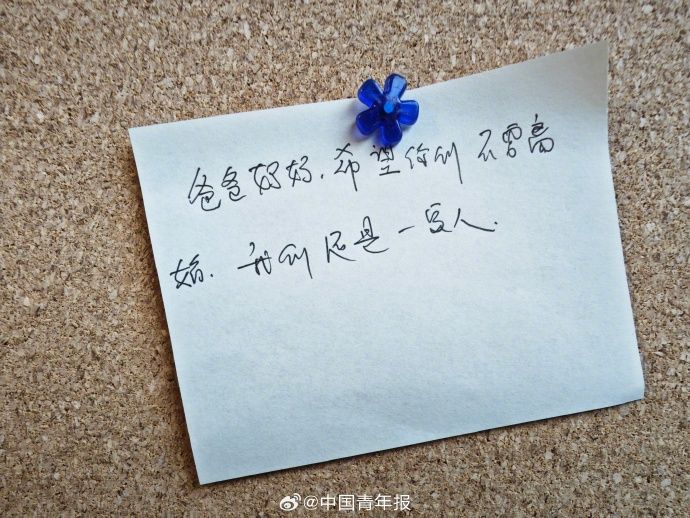 爸爸妈妈.希望你们不要离
婚.我们还是一家人.
@中国青年报